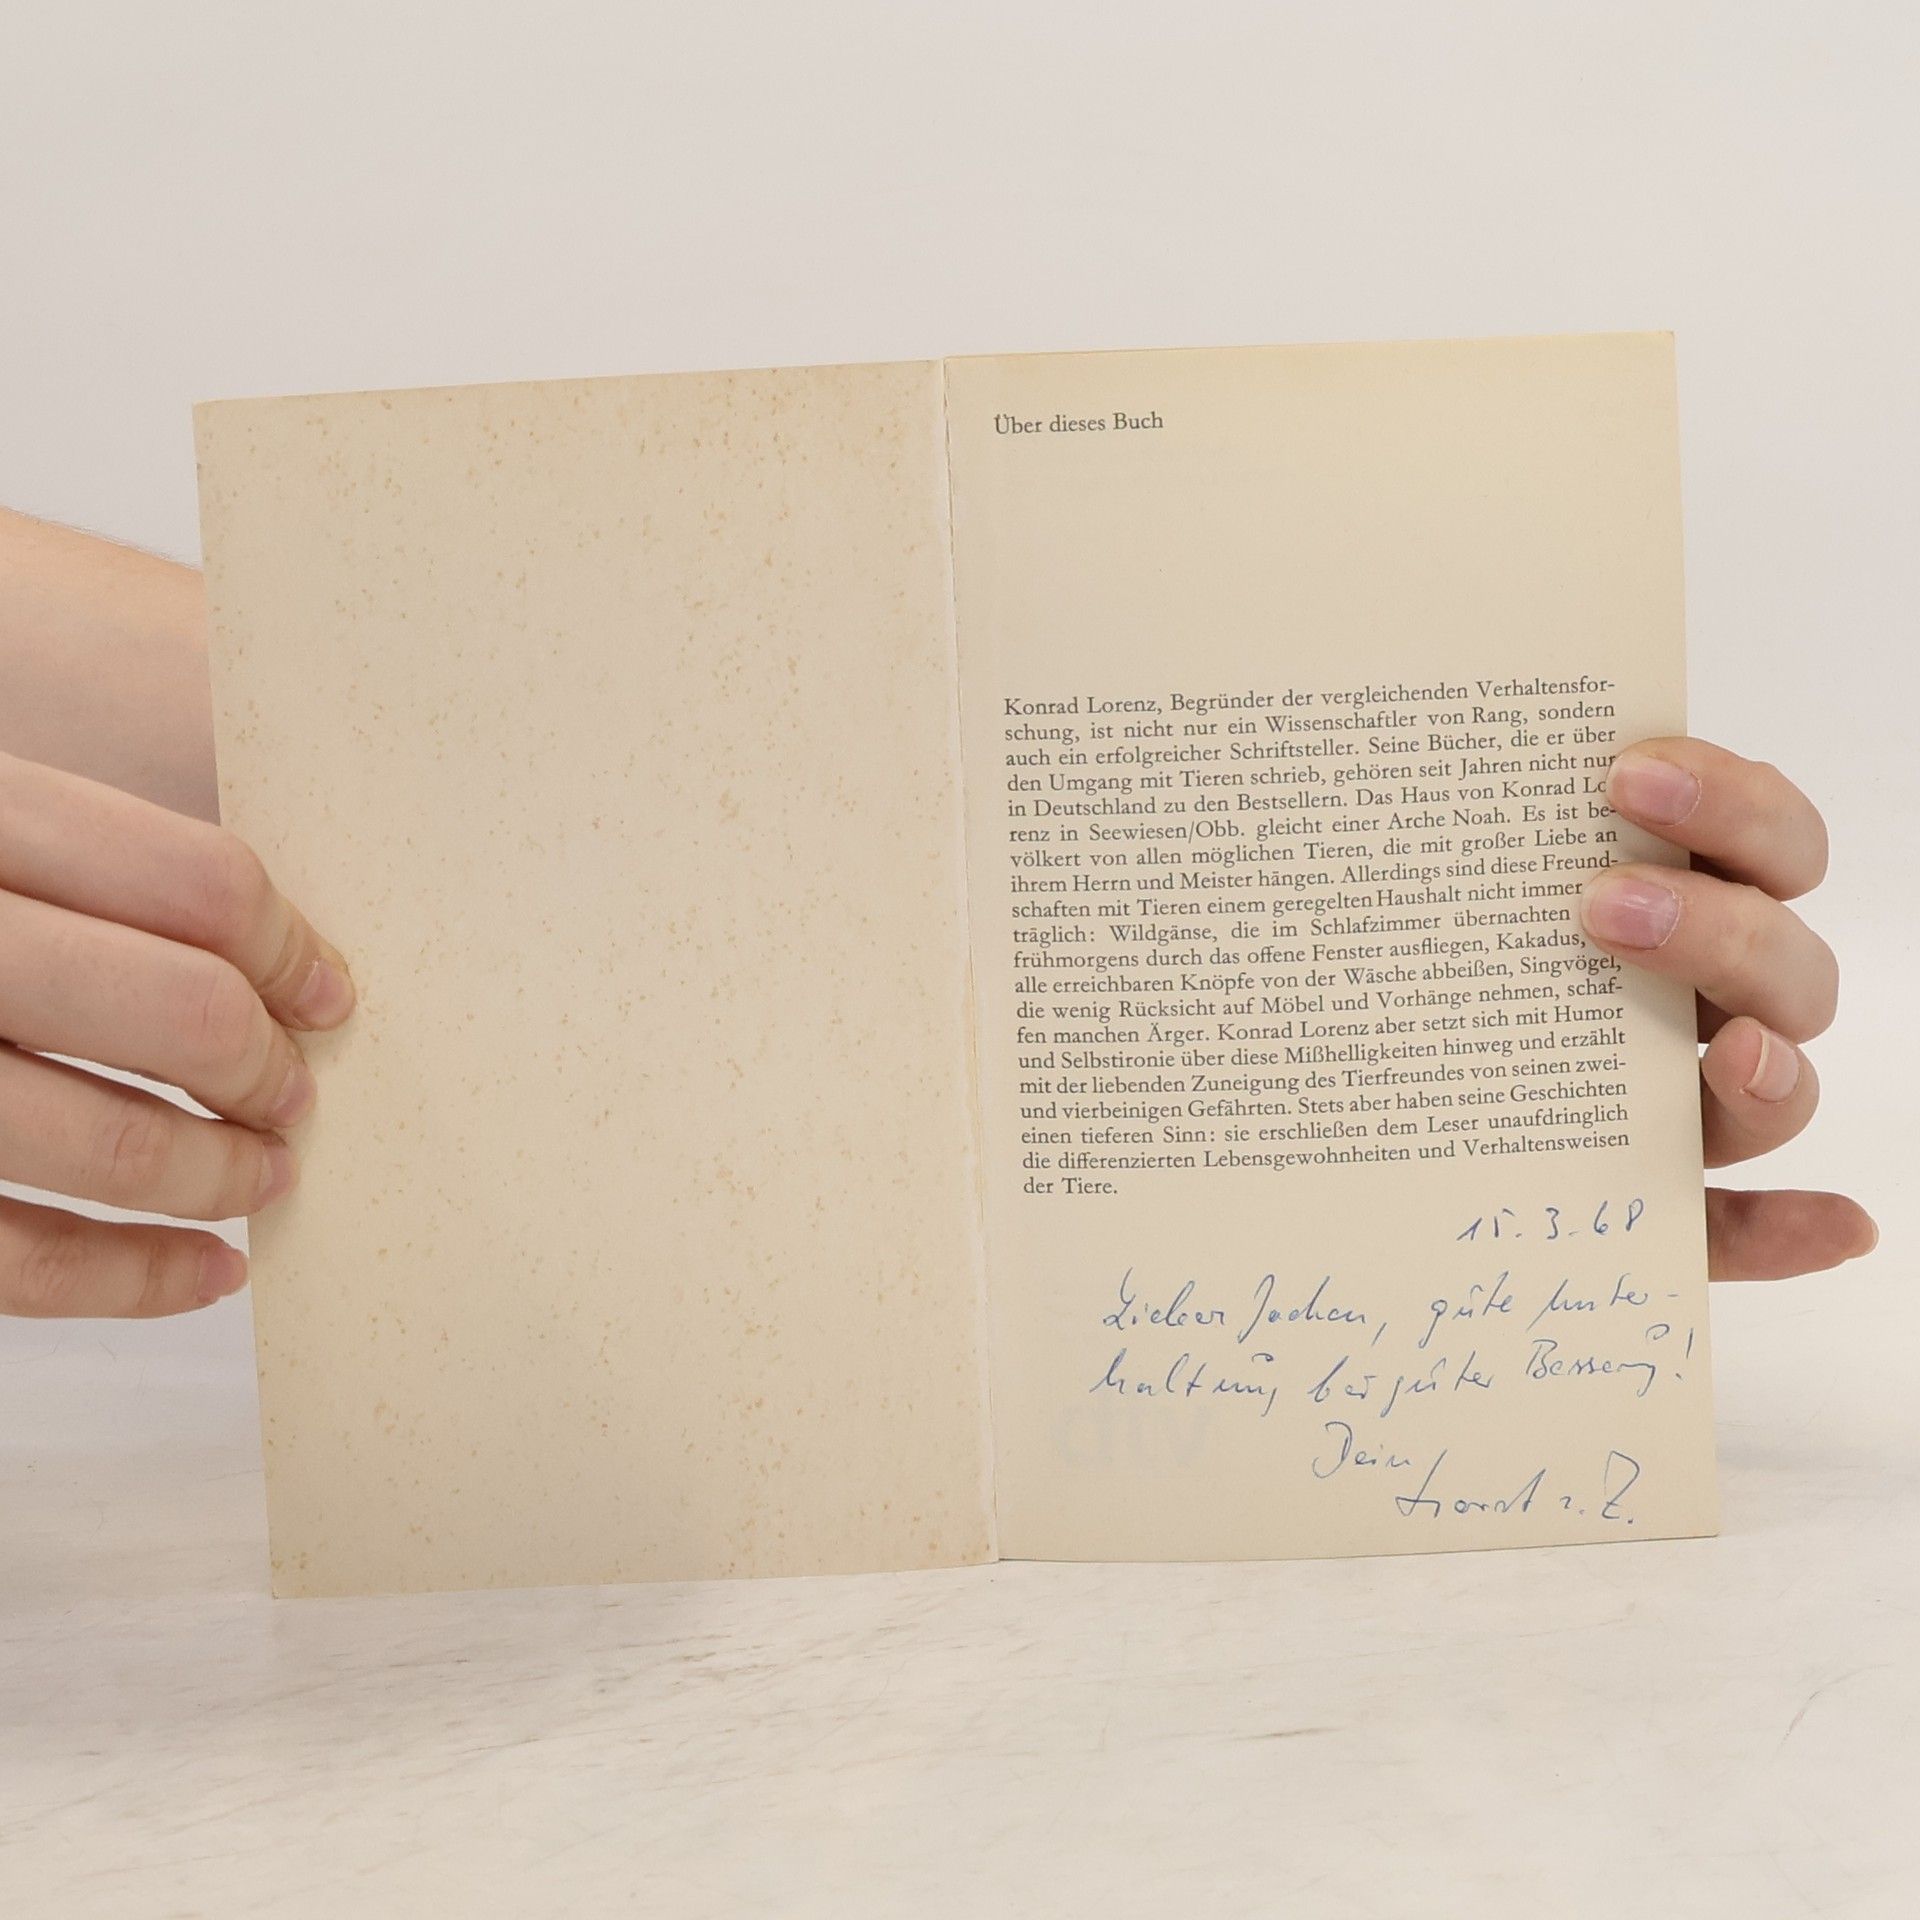 Über dieses Buch
Konrad Lorenz, Begründer der vergleichenden Verhaltensfor-
schung, ist nicht nur ein Wissenschaftler von Rang, sondern
auch ein erfolgreicher Schriftsteller. Seine Bücher, die er über
den Umgang mit Tieren schrieb, gehören seit Jahren nicht nur
in Deutschland zu den Bestsellern. Das Haus von Konrad Lo
renz in Seewiesen/Obb. gleicht einer Arche Noah. Es ist be-
völkert von allen möglichen Tieren, die mit großer Liebe an
ihrem Herrn und Meister hängen. Allerdings sind diese Freund-
schaften mit Tieren einem geregelten Haushalt nicht immer
träglich: Wildgänse, die im Schlafzimmer übernachten
frühmorgens durch das offene Fenster ausfliegen, Kakadus,
alle erreichbaren Knöpfe von der Wäsche abbeißen, Singvögel,
die wenig Rücksicht auf Möbel und Vorhänge nehmen, schaf-
fen manchen Ärger. Konrad Lorenz aber setzt sich mit Humor
und Selbstironie über diese Mißhelligkeiten hinweg und erzählt
mit der liebenden Zuneigung des Tierfreundes von seinen zwei-
und vierbeinigen Gefährten. Stets aber haben seine Geschichten
einen tieferen Sinn: sie erschließen dem Leser unaufdringlich
die differenzierten Lebensgewohnheiten und Verhaltensweisen
der Tiere.
15.3.68
Lieber Jochen, gute Unter-
haltung bei guter Besserung!
Dein
Horst